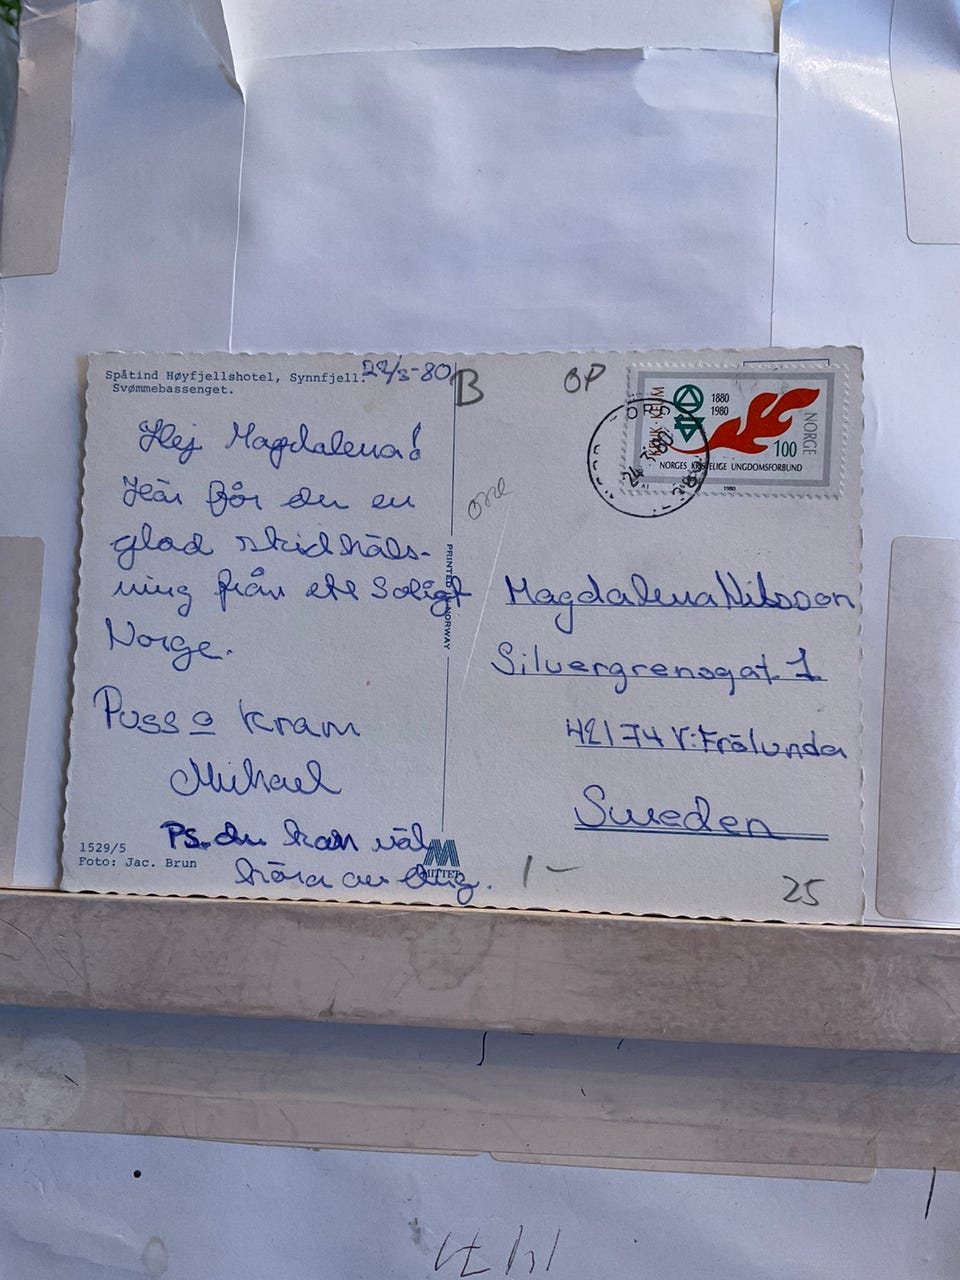 Spåtind Høyfjellshotel, Synnfjell.
Svømmebassenget.
22/3-80
Hej Magdalena!
Här får du en
glad skidhäls-
ning från ett soligt
Norge.
Puss o Kram
Mikael
PS. du kan väl
höra av dig.
1529/5
Foto: Jac. Brun
PRINTED NORWAY
MITTET
B
OP
KFUK-KFUM
1880
1980
NORGE
100
NORGES KRISTELIGE UNGDOMSFORBUND
1980
Magdalena Nilsson
Silvergrensgat 1
42174 V:Frölunda
Sweden
1-
25